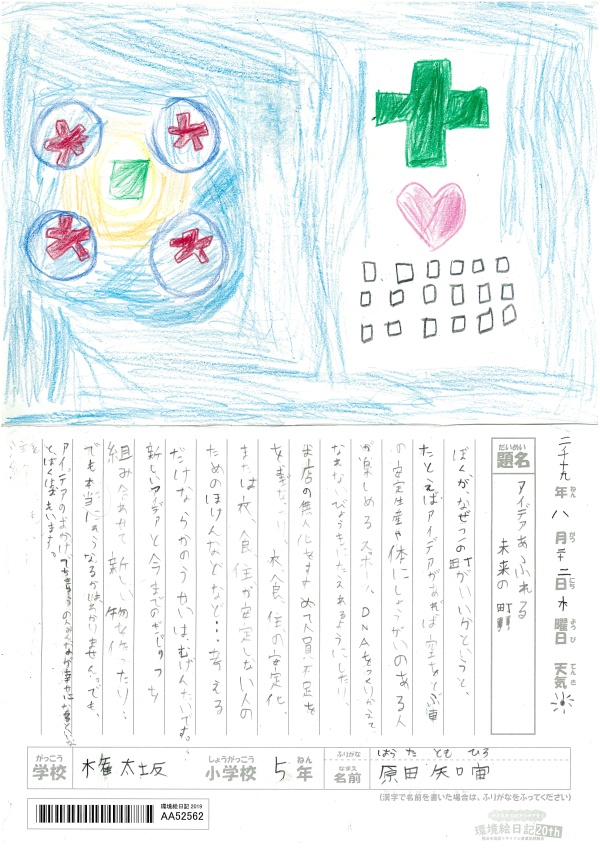 二千十九年八月二十二日木曜日 天気
ねん がつ にち ようび てんき
だいめい
題名
アイデアあふれる
未来の町
ぼくが、なぜこの町がいいかというと、
たとえばアイデアがあれば空をとぶ車
の安定生産や体にしょうがいのある人
が楽しめるスポーツ、DNAをつくりかえて
なおせないびょうきにたえれるようにしたり、
お店の無人化をすすめて人員不足を
衣食住の安定化、
または衣、食、住が安定しない人の
ためのほけんなどなど…考える
だけならかのうせいは、むげんだいです。
新しいアイデアと今までのぎじゅつを
組みあわせて新しい物を作ったり…
でも本当にこうなるかは、わかりません。でも、
アイデアのおかげでちきゅうのみんなが幸せになるといいな
とぼくは思います。
がっこう
学校
権太坂
しょうがっこう
小学校
5
ねん
年
ふりがな
はら た とも ひろ
なまえ
名前
原田 知宙
(漢字で名前を書いた場合は、ふりがなをふってください)
環境絵日記 2019
AA52562
環境絵日記20th